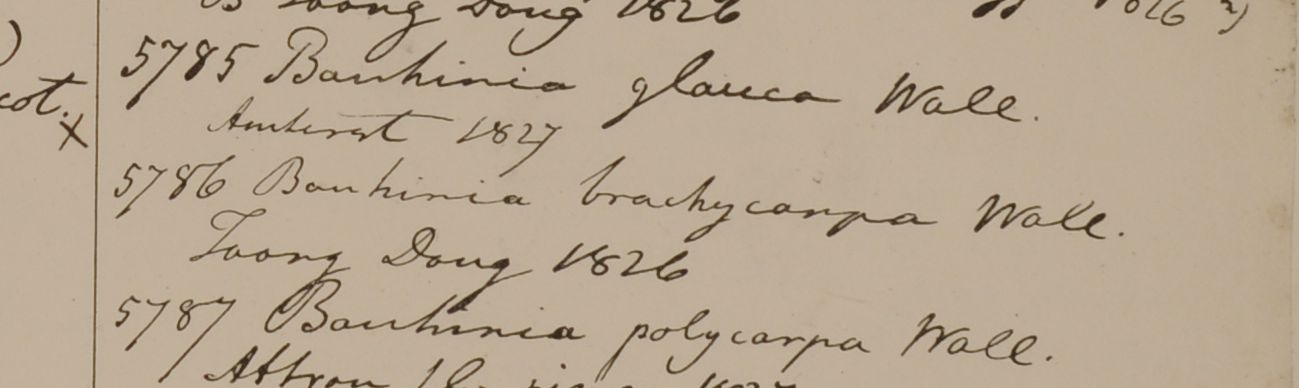 B Toong Doug 1826
5785 Bauhinia glauca Wall.
Amherst 1827
cot. X
5786 Bauhinia brachycarpa Wall.
Toong Doug 1826
5787 Bauhinia polycarpa Wall.
Attran